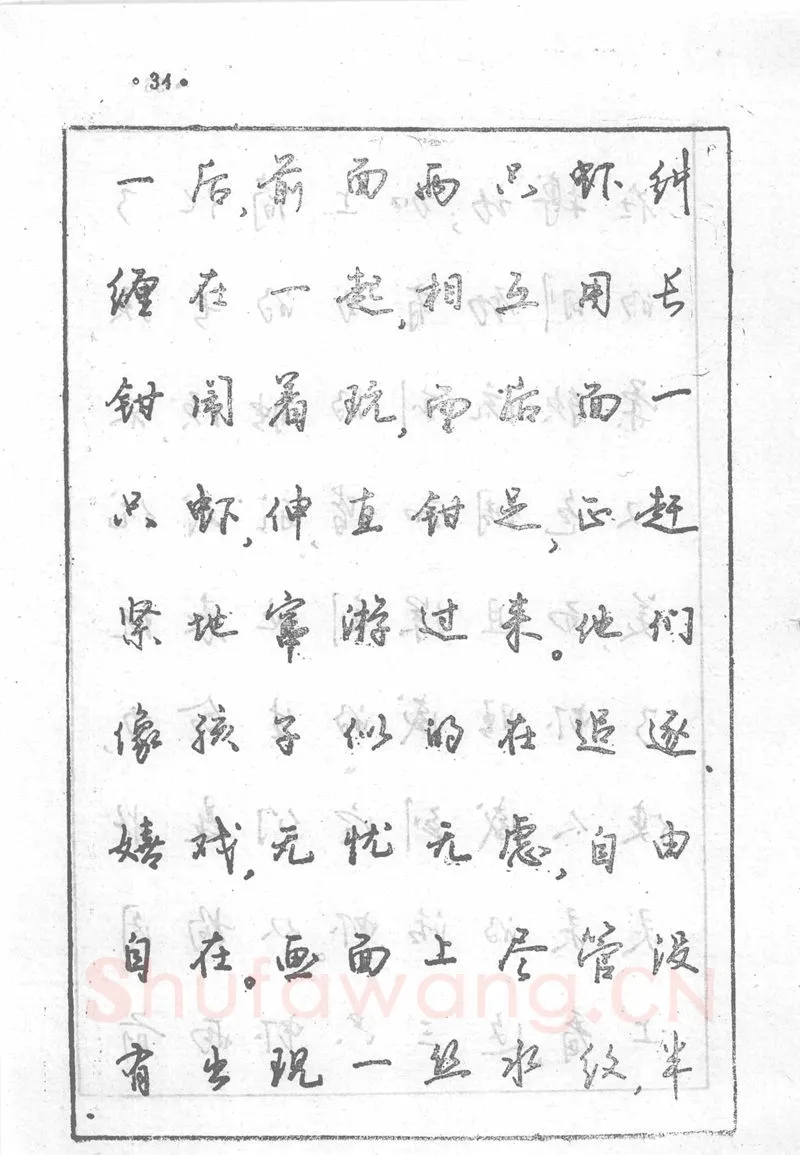 •31•
一后,前面两只虾纠
缠在一起,相互用长
钳闹着玩,而后面一
只虾,伸直钳足,正赶
紧地窜游过来。他们
像孩子似的在追逐、
嬉戏,无忧无虑,自由
自在。画面上尽管没
有出现一丝水纹,半
Shufawang.CN